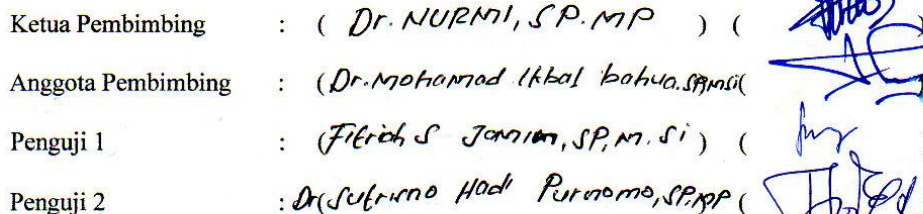 Ketua Pembimbing : ( Dr. NURMI, SP. MP ) (
Anggota Pembimbing : (Dr. Mohamad Ikbal bahua. SP, Msi(
Penguji 1 : (Fitriah S Jamin, SP, M. Si ) (
Penguji 2 : Dr(Sutrisno Hadi Purnomo, SP, MP (